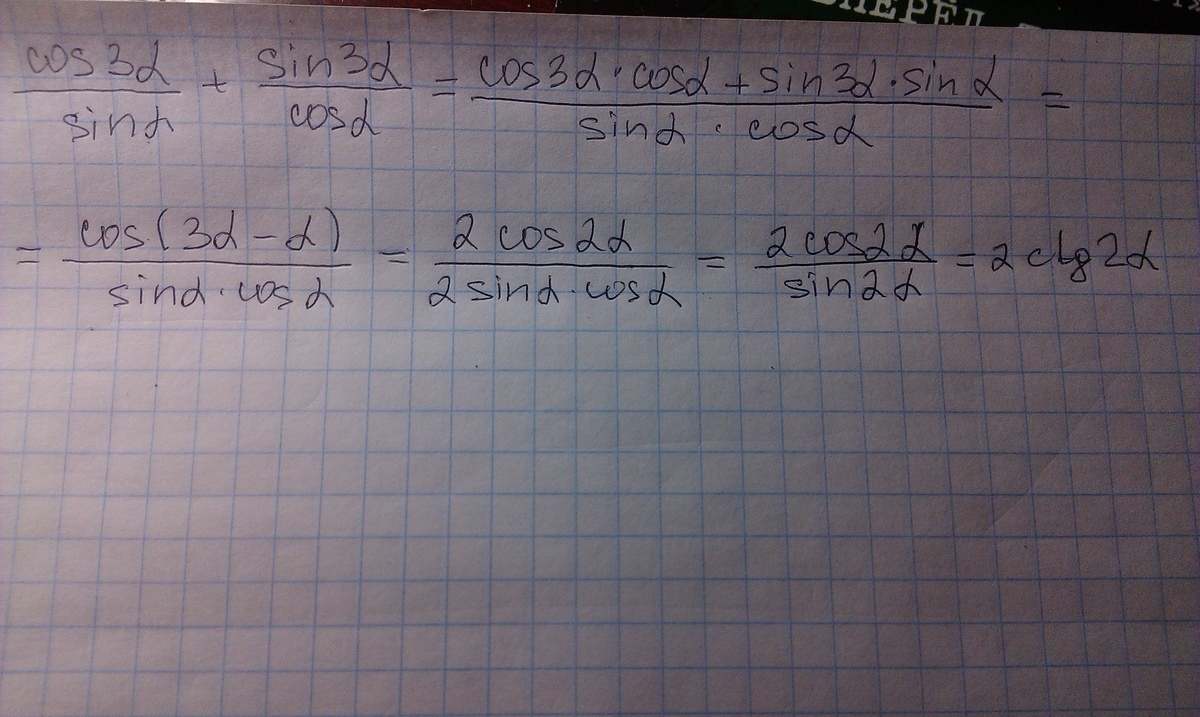 ПЕРЁД
cos3α/sinα + sin3α/cosα = (cos3α · cosα + sin3α · sinα)/(sinα · cosα) =
= cos(3α - α)/(sinα · cosα) = 2cos2α/(2sinα · cosα) = 2cos2α/sin2α = 2ctg2α